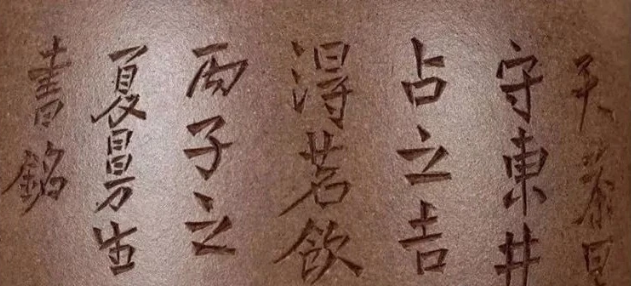 天茶星
守東井
占之吉
淂茗飲
丙子之
夏曼生
書銘